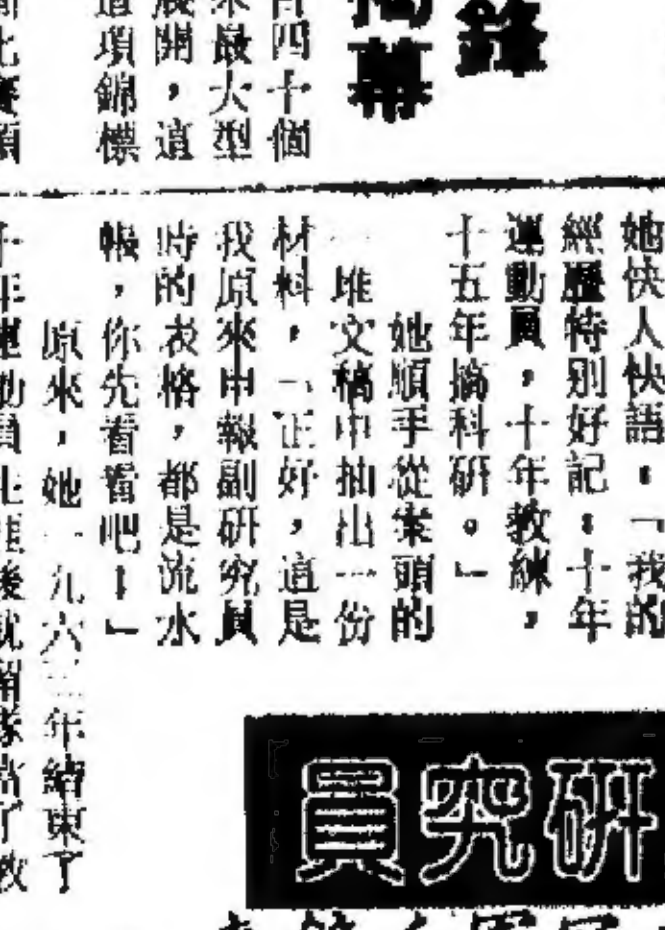 鋒
幕
百四十個
來最大型
展開，這
這項錦標
她快人快語：「我的
經歷特別好記：十年
運動員，十年教練，
十五年搞科研。」
她順手從案頭的
一堆文稿中抽出一份
材料，「正好，這是
我原來申報副研究員
時的表格，都是流水
帳，你先看看吧！」
原來，她一九六三年結束了
十年運動員生涯後就留隊當了教
研究員